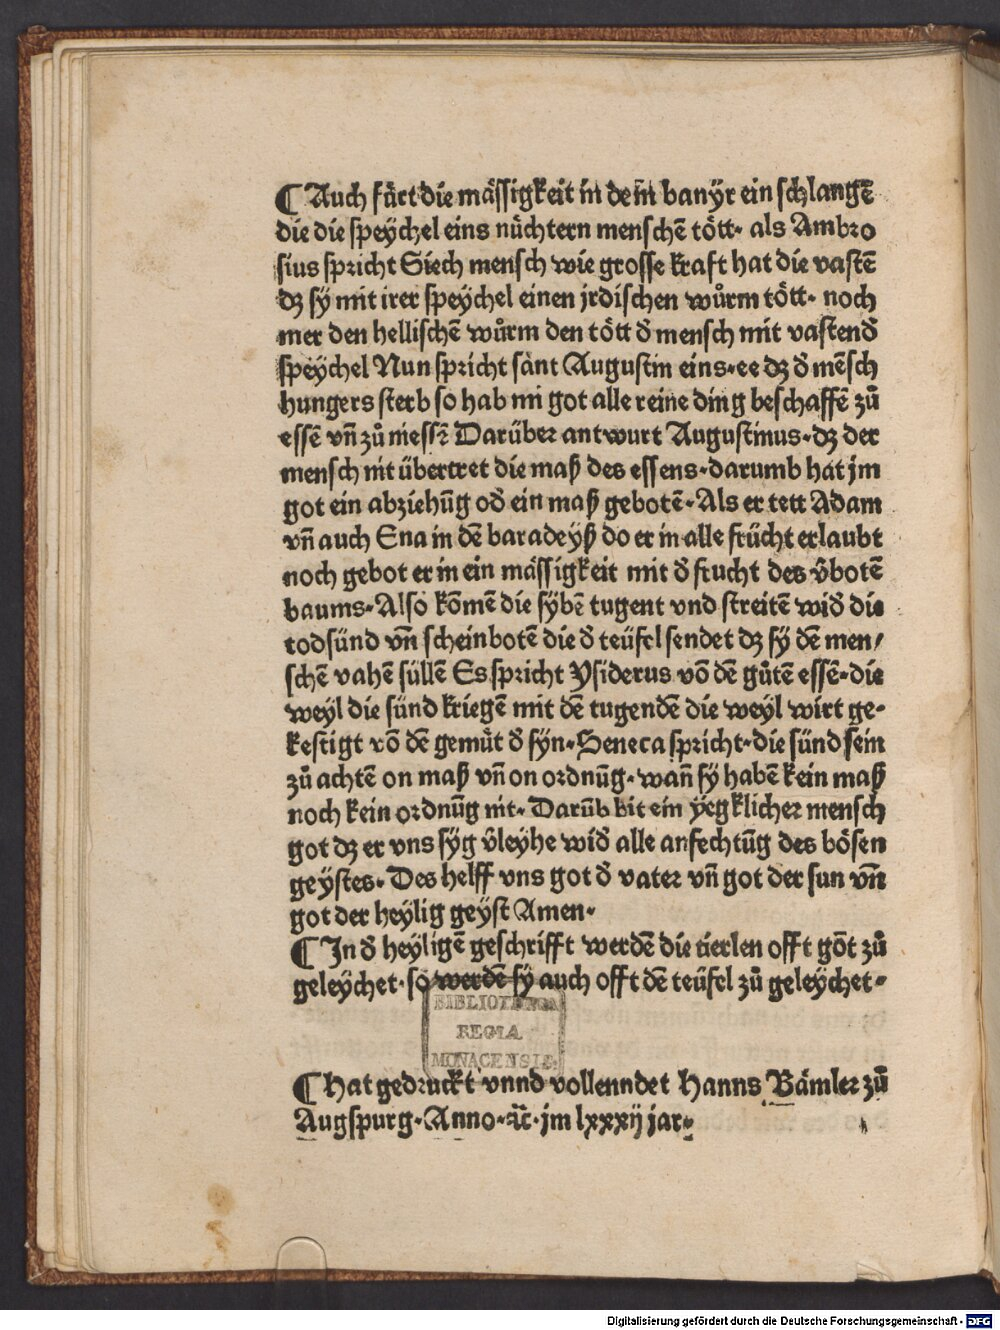 ¶ Auch fürt die mässigkeit in dem banÿr ein schlangē
die die speÿchel eins nüchtern menschē tött· als Ambro
sius spricht Siech mensch wie grosse kraft hat die vastē
dʒ sÿ mit irer speÿchel einen jrdischen wůrm tött· noch
mer den hellischē wůrm den tött đ mensch mit vastenđ
speÿchel Nun spricht sant Augustin eins·ee dʒ đ mēsch
hungers sterb so hab im got alle reine ding beschaffē zů
essē vn̄ zů niessē Darüber antwurt Augustinus·dʒ der
mensch nit übertret die maß des essens·darumb hat jm
got ein abziehūg ođ ein maß gebotē·Als er tett Adam
vn̄ auch Eua in dē baradeÿß do er in alle frücht erlaubt
noch gebot er in ein mässigkeit mit đ frucht des v̄botē
baums·Also kōmē die sÿbē tugent vnd streitē wiđ die
todsünd vn̄ scheinbotē die đ teüfel sendet dʒ sÿ dē men/
schē vahē süllē Es spricht Ysiderus vō dē gůtē essē·die
weÿl die sünd kriegē mit dē tugendē die weÿl wirt ge-
kestigt vō dē gemüt đ sÿn·Seneca spricht·die sünd sein
zů achtē on maß vn̄ on ordnūg·wan̄ sÿ habē kein maß
noch kein ordnūg nit· Darūb bit ein ÿegklicher mensch
got dʒ er vns sÿg v̄leÿhe wiđ alle anfechtūg des bösen
geÿstes· Des helff vns got đ vater vn̄ got der sun vn̄
got der heÿlig geÿst Amen·
¶ In đ heÿligē geschrifft werdē die tierlen offt göt zů
geleÿchet·so werdē sÿ auch offt dē teüfel zů geleÿchet·
BIBLIOTHECA
REGIA
MONACENSIS.
¶ Hat gedruckt vnnd vollenndet Hanns Bämler zů
Augspurg·Anno·ꝛc̄·jm lxxxij jar·
Digitalisierung gefördert durch die Deutsche Forschungsgemeinschaft - DFG